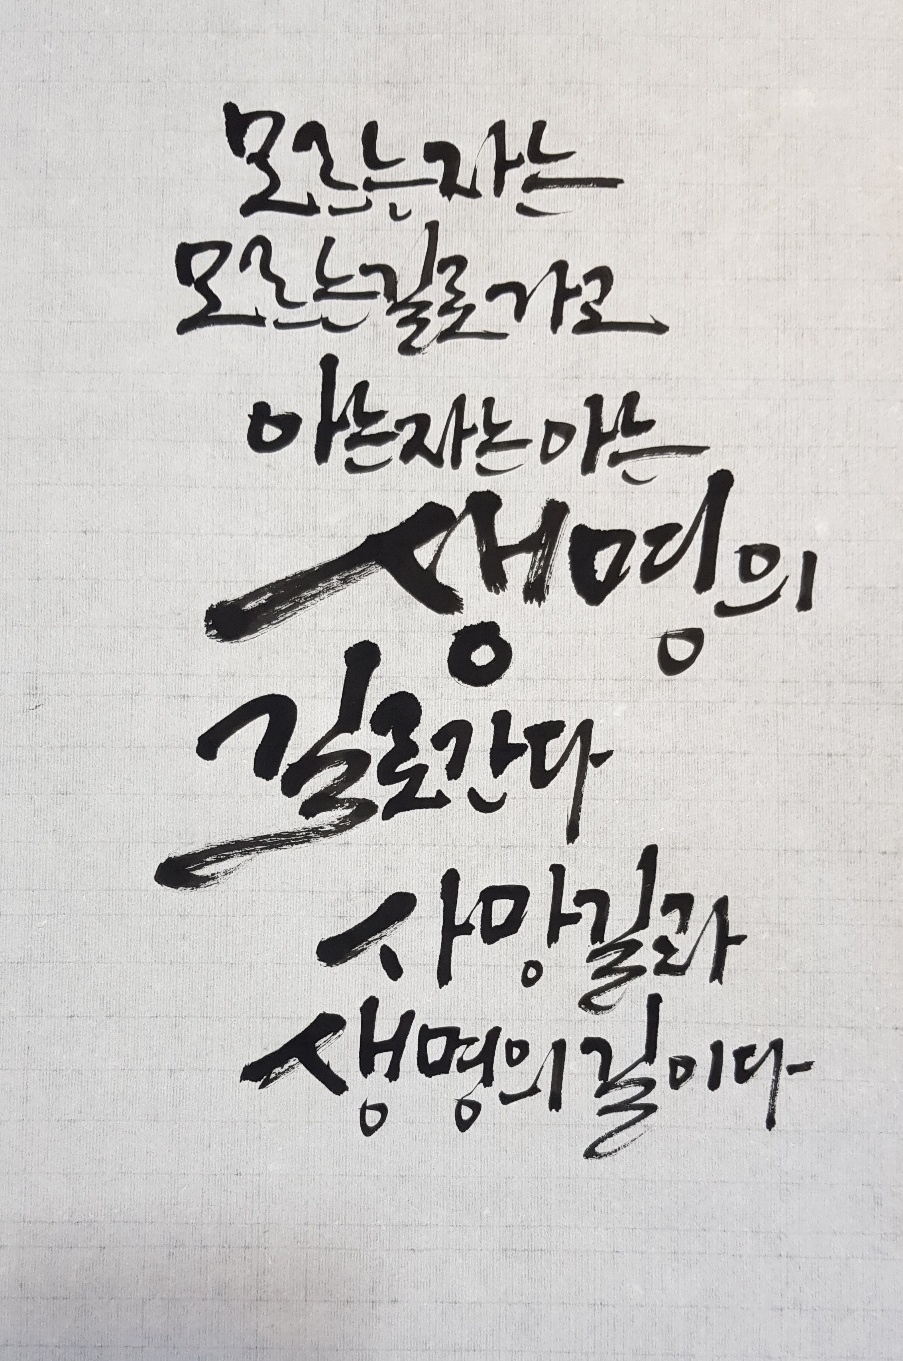 모르는 자는
모르는 길로 가고
아는 자는 아는
생명의
길로 간다
사망길과
생명의 길이다